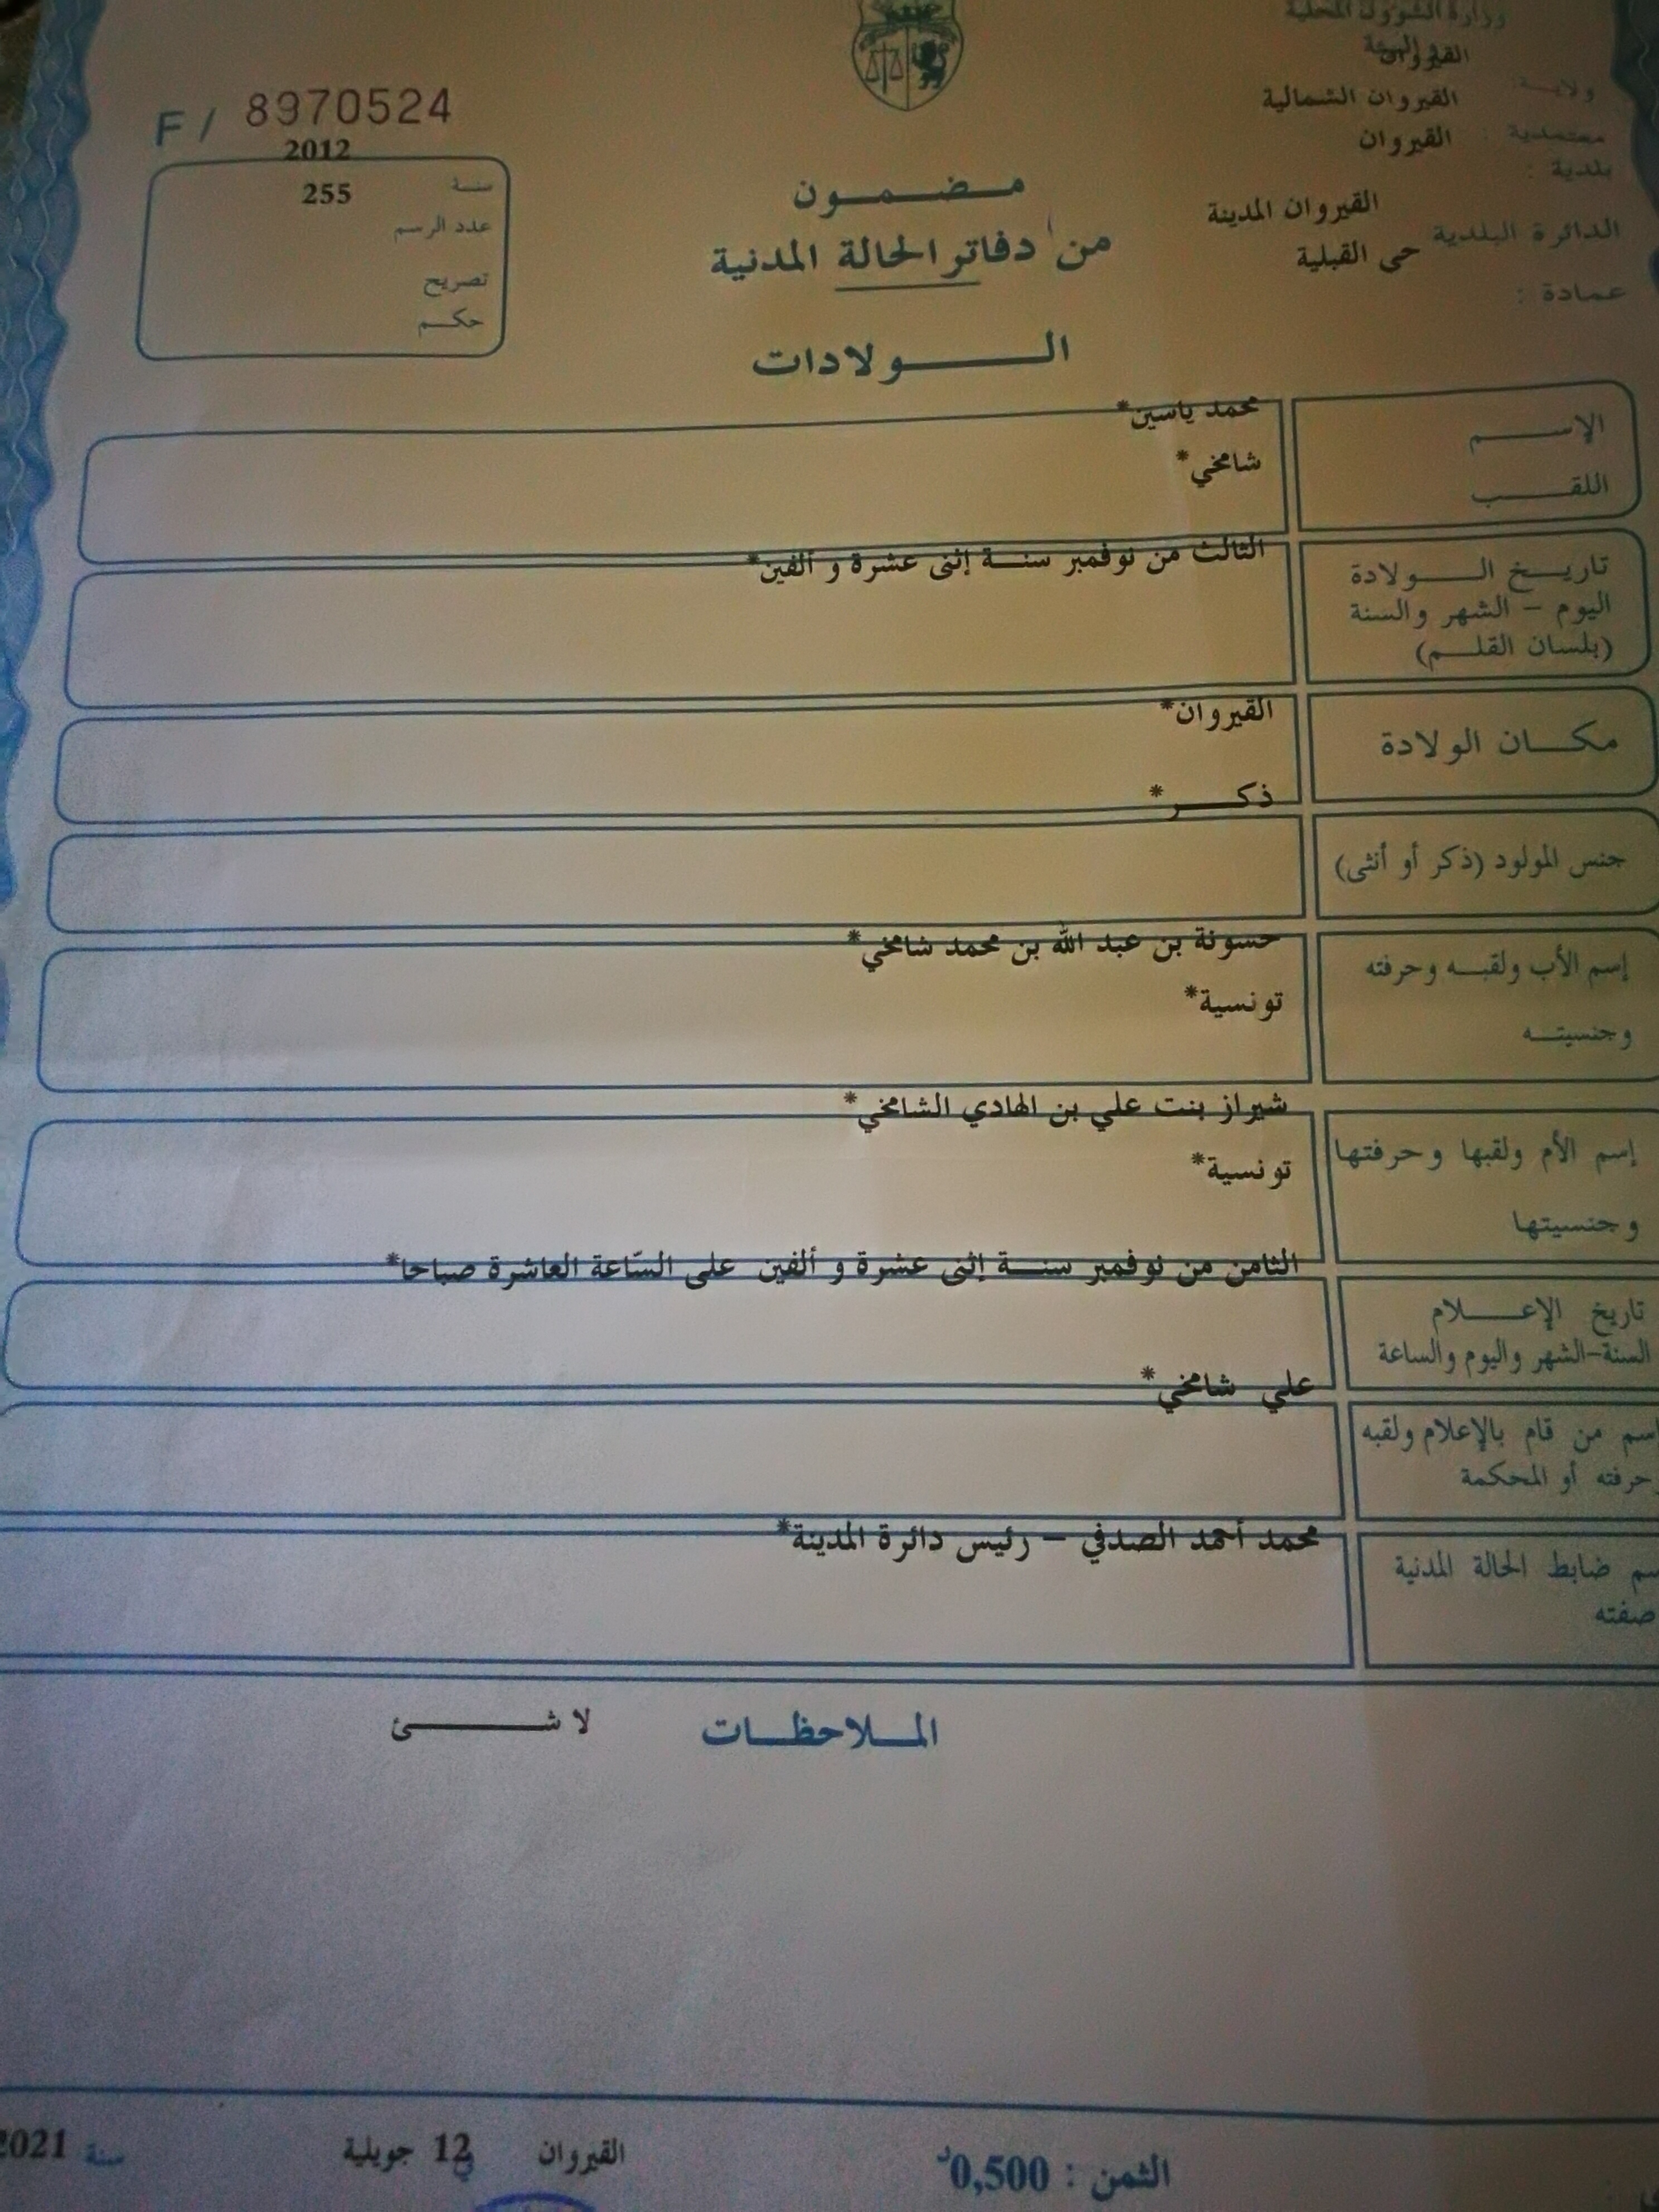 وزارة الشؤون المحلية
و البيئة
ولاية : القيروان
معتمدية : القيروان الشمالية
بلدية : القيروان
الدائرة البلدية القيروان المدينة
عمادة : حى القبلية
F / 8970524
سنة 2012
عدد الرسم 255
تصريح
حكم
مضمون
من دفاتر الحالة المدنية
الولادات
الإسم محمد ياسين*
اللقب شامخي*
تاريخ الولادة الثالث من نوفمبر سنة إثنى عشرة و ألفين*
اليوم - الشهر والسنة
(بلسان القلم)
مكان الولادة القيروان*
جنس المولود (ذكر أو أنثى) ذكر*
إسم الأب ولقبه وحرفته حسونة بن عبد الله بن محمد شامخي*
وجنسيته تونسية*
إسم الأم ولقبها وحرفتها شيراز بنت علي بن الهادي الشامخي*
وجنسيتها تونسية*
تاريخ الإعلام الثامن من نوفمبر سنة إثنى عشرة و ألفين على السّاعة العاشرة صباحا*
السنة-الشهر واليوم والساعة
اسم من قام بالإعلام ولقبه علي شامخي*
حرفته أو المحكمة
سم ضابط الحالة المدنية محمد أحمد الصدفي - رئيس دائرة المدينة*
صفته
الملاحظات لا شئ
الثمن : 0,500د
القيروان في 12 جويلية سنة 2021